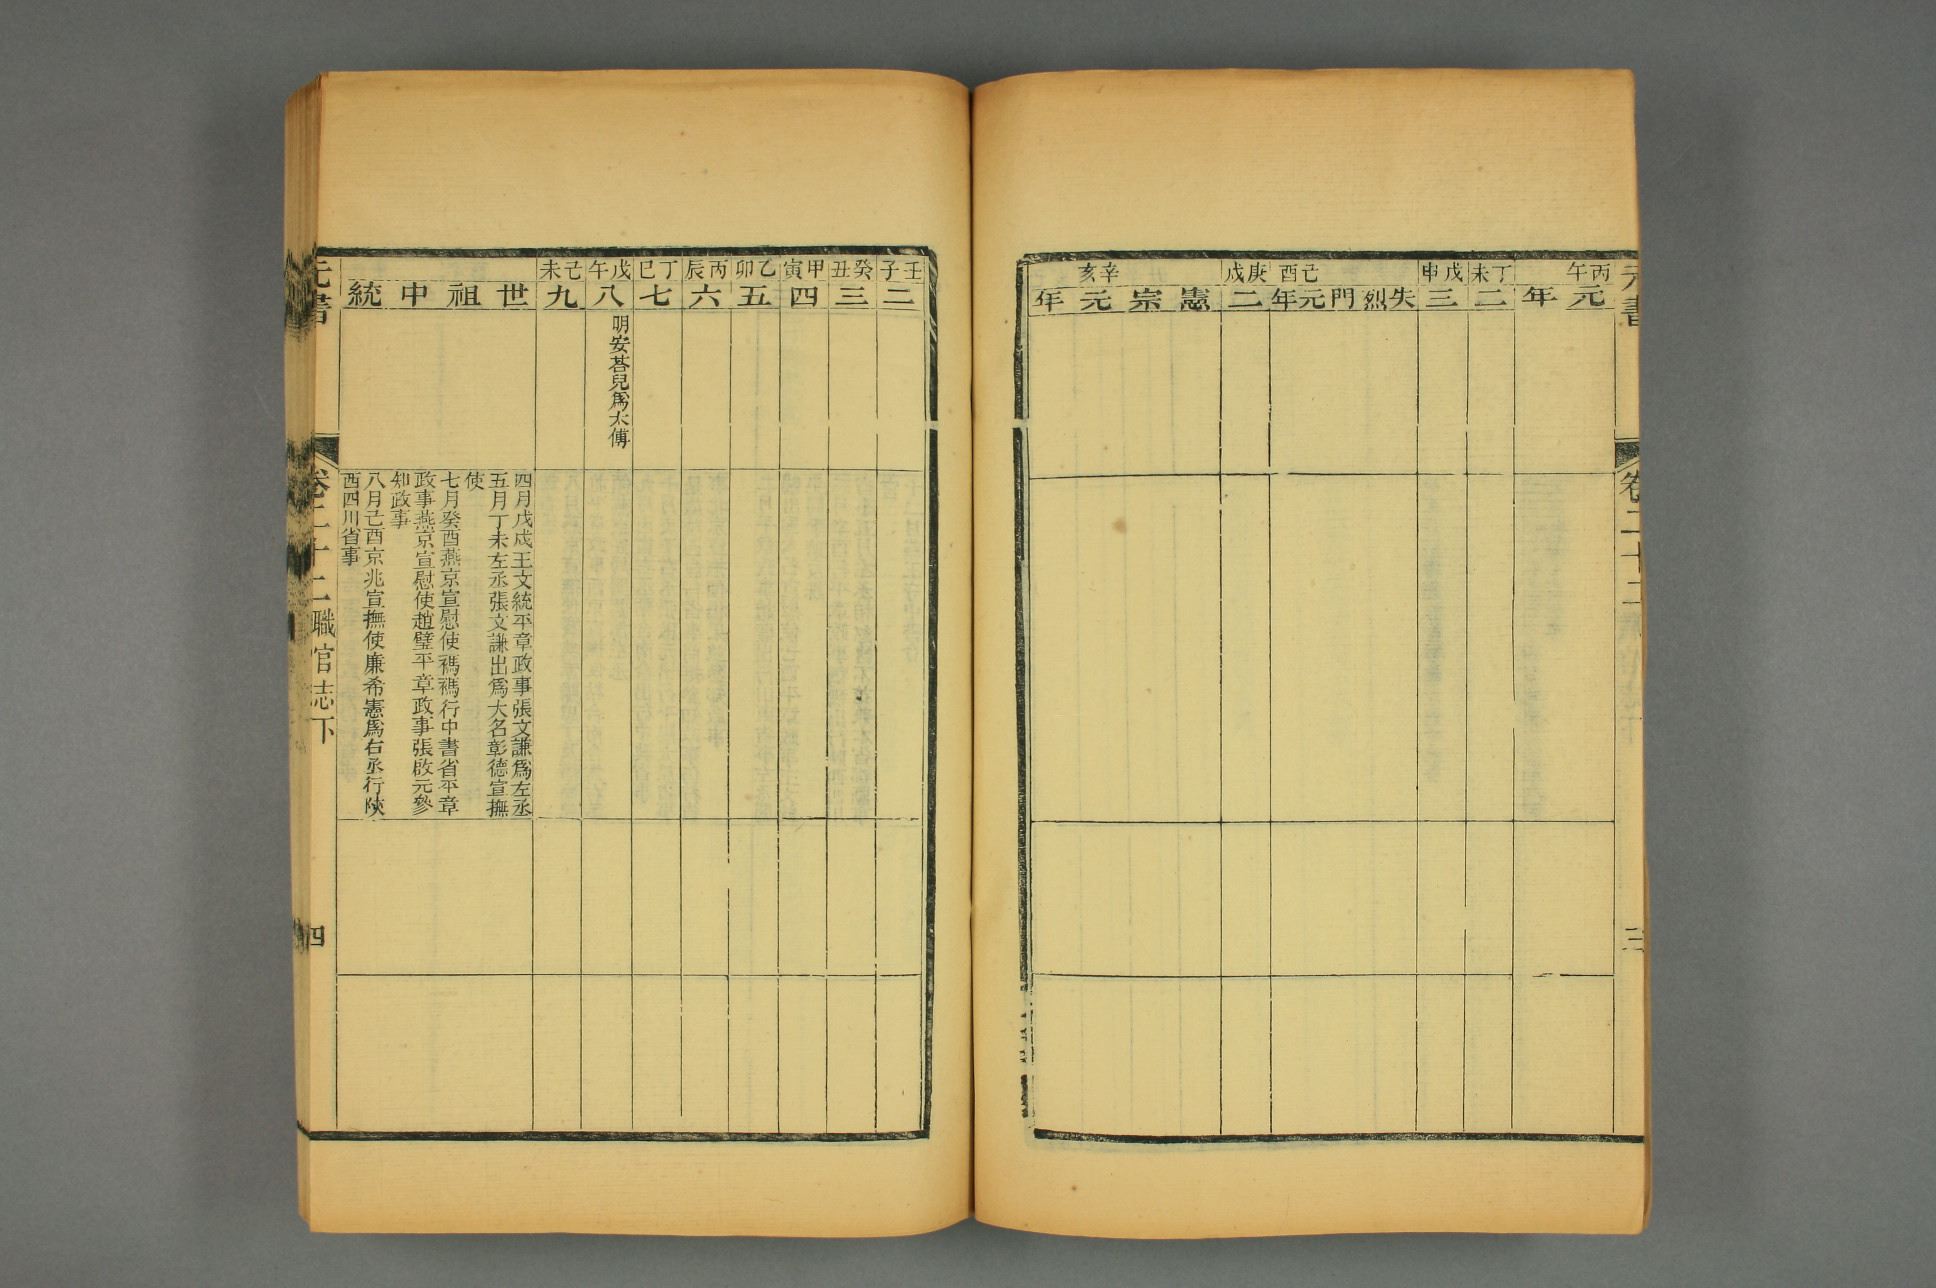 丙午
元年
丁未
二
戊申
三
己酉
失烈門元年
庚戌
二
辛亥
憲宗元年
壬子
二
癸丑
三
甲寅
四
乙卯
五
丙辰
六
丁巳
七
戊午
八
明安荅兒爲太傅
己未
九
世祖中統
四月戊戌王文統平章政事張文謙爲左丞
五月丁未左丞張文謙出爲大名彰德宣撫
使
七月癸酉燕京宣慰使禡禡行中書省平章
政事燕京宣慰使趙璧平章政事張啟元參
知政事
八月己酉京兆宣撫使廉希憲爲右丞行陜
西四川省事
元書
卷二十二職官志下
四